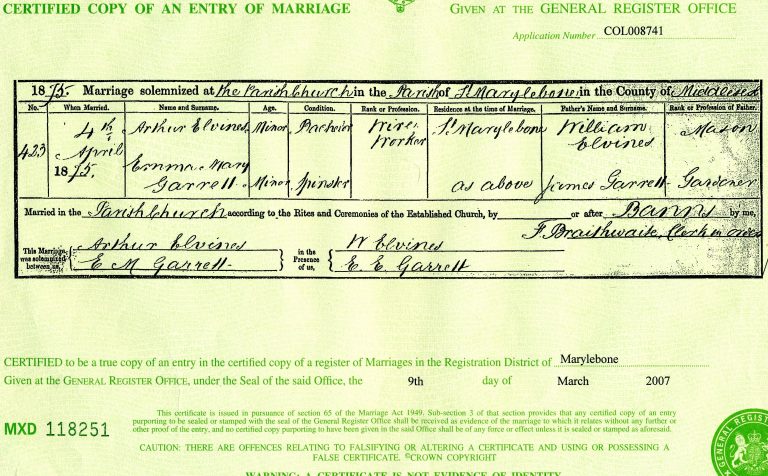 CERTIFIED COPY OF AN ENTRY OF MARRIAGE
GIVEN AT THE GENERAL REGISTER OFFICE
Application Number COL008741
1875. Marriage solemnized at the Parish Church in the Parish of St. Marylebone in the County of Middlesex
No. When Married. Name and Surname. Age. Condition. Rank or Profession. Residence at the time of Marriage. Father's Name and Surname. Rank or Profession of Father.
423 4th April 1875. Arthur Elvines Minor Bachelor Wire Worker St Marylebone William Elvines Mason
Emma Mary Garrett Minor Spinster as above James Garrett Gardener
Married in the Parish Church according to the Rites and Ceremonies of the Established Church, by or after Banns by me,
F. Braithwaite, Clerk in
This Marriage was solemnized between us, Arthur Elvines in the Presence of us, W Elvines
E M Garrett E. E. Garrett
CERTIFIED to be a true copy of an entry in the certified copy of a register of Marriages in the Registration District of Marylebone
Given at the GENERAL REGISTER OFFICE, under the Seal of the said Office, the 9th day of March 2007
MXD 118251
This certificate is issued in pursuance of section 65 of the Marriage Act 1949. Sub-section 3 of that section provides that any certified copy of an entry
purporting to be sealed or stamped with the seal of the General Register Office shall be received as evidence of the marriage to which it relates without any further or
other proof of the entry, and no certified copy purporting to have been given in the said Office shall be of any force or effect unless it is sealed or stamped as aforesaid.
CAUTION: THERE ARE OFFENCES RELATING TO FALSIFYING OR ALTERING A CERTIFICATE AND USING OR POSSESSING A
FALSE CERTIFICATE. ©CROWN COPYRIGHT
WARNING: A CERTIFICATE IS NOT EVIDENCE OF IDENTITY